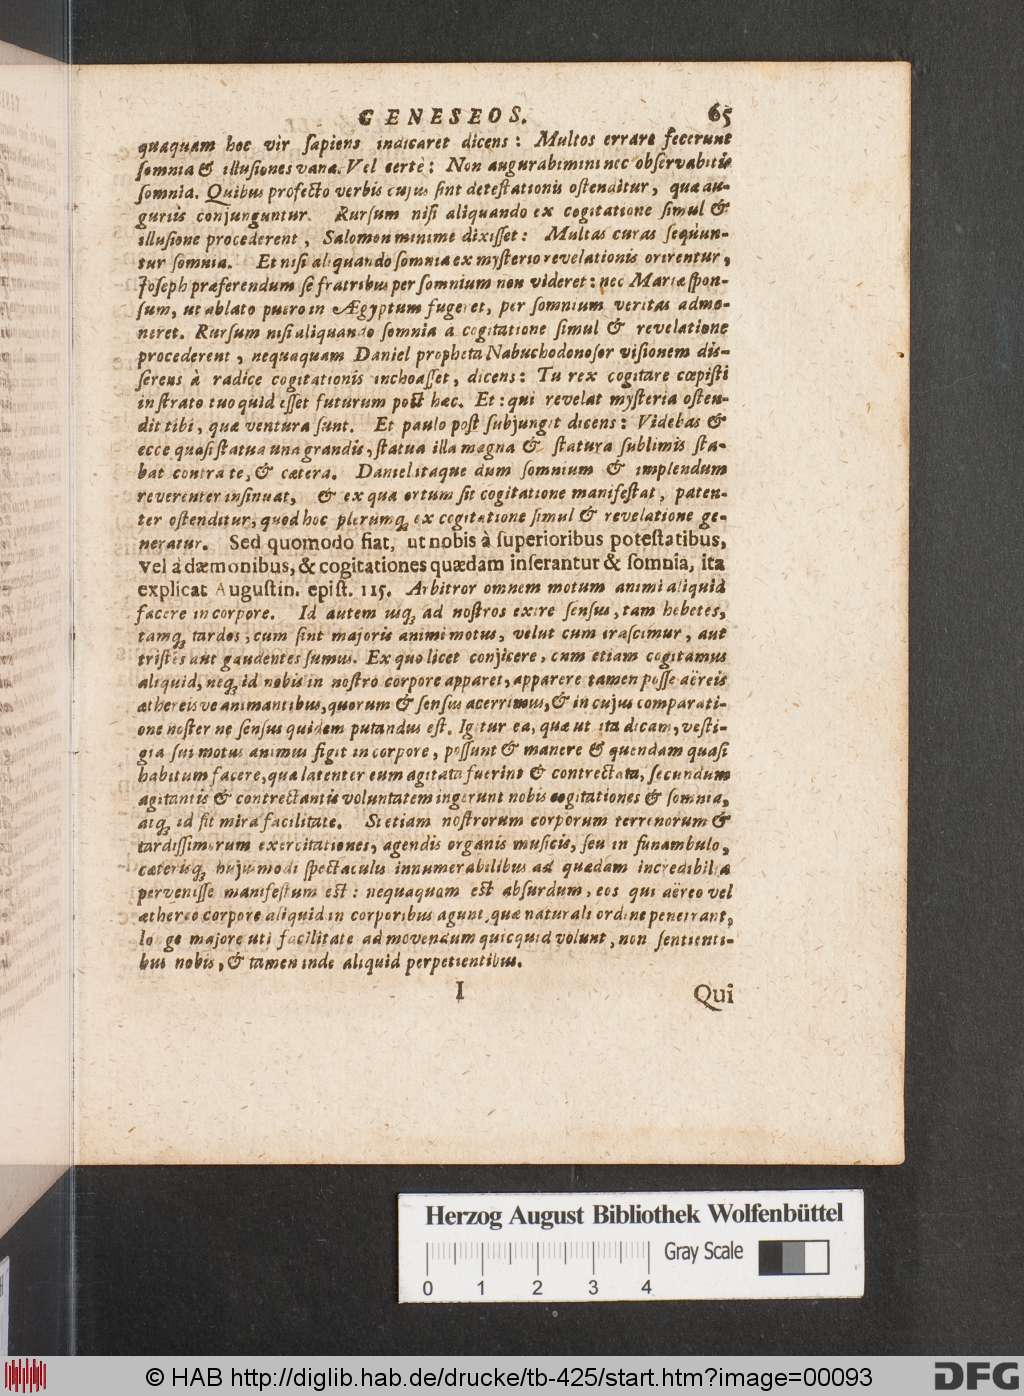 GENESEOS. 65
quaquam hoc vir ſapiens indicaret dicens: Multos errare fecerunt
ſomnia & illuſiones vana. Vel certè: Non augurabimini nec obſervabitis
ſomnia. Quibus profecto verbis cujus ſint deteſtationis oſtenditur, quæ au-
guriis conjunguntur. Rurſum niſi aliquando ex cogitatione ſimul &
illuſione procederent, Salomon minime dixiſſet: Multas curas ſequun-
tur ſomnia. Et niſi aliquando ſomnia ex myſterio revelationis orirentur,
Joſeph præferendum ſe fratribus per ſomnium non videret: nec Mariæ ſpon-
ſum, ut ablato puero in Ægyptum fugeret, per ſomnium veritas admo-
neret. Rurſum niſi aliquando ſomnia a cogitatione ſimul & revelatione
procederent, nequaquam Daniel propheta Nabuchodonoſor viſionem diſ-
ſerens à radice cogitationis inchoaſſet, dicens: Tu rex cogitare cœpiſti
in ſtrato tuo quid eſſet futurum poſt hæc. Et: qui revelat myſteria oſten-
dit tibi, quæ ventura ſunt. Et paulo poſt ſubjungit dicens: Videbas &
ecce quaſi ſtatua una grandis, ſtatua illa magna & ſtatura ſublimis ſta-
bat contra te, & cætera. Daniel itaque dum ſomnium & implendum
reverenter inſinuat, & ex qua ortum ſit cogitatione manifeſtat, paten-
ter oſtenditur, quod hoc plerumq; ex cogitatione ſimul & revelatione ge-
neratur. Sed quomodo fiat, ut nobis à ſuperioribus poteſtatibus,
vel à dæmonibus, & cogitationes quædam inſerantur & ſomnia, ita
explicat Auguſtin. epiſt. 115. Arbitror omnem motum animi aliquid
facere in corpore. Id autem uſq; ad noſtros exire ſenſus, tam hebetes,
tamq; tardos, cum ſint majoris animi motus, velut cum iraſcimur, aut
triſtes aut gaudentes ſumus. Ex quo licet conjicere, cum etiam cogitamus
aliquid, neq; id nobis in noſtro corpore apparet, apparere tamen poſſe aëreis
æthereisve animantibus, quorum & ſenſus acerrimus, & in cujus comparati-
one noſter ne ſenſus quidem putandus eſt. Igitur ea, quæ ut ita dicam, veſti-
gia ſui motus animus figit in corpore, poſſunt & manere & quendam quaſi
habitum facere, quæ latenter cum agitata fuerint & contrectata, ſecundum
agitantis & contrectantis voluntatem ingerunt nobis cogitationes & ſomnia,
atq; id fit mira facilitate. Si etiam noſtrorum corporum terrenorum &
tardiſſimorum exercitationes, agendis organis muſicis, ſeu in funambulo,
cæterisq; hujusmodi ſpectaculis innumerabilibus ad quædam incredibilia
perveniſſe manifeſtum eſt: nequaquam eſt abſurdum, eos qui aëreo vel
æthereo corpore aliquid in corporibus agunt, quæ naturali ordine penetrant,
longe majore uti facilitate ad movendum quicquid volunt, non ſentienti-
bus nobis, & tamen inde aliquid perpetientibus.
I Qui
Herzog August Bibliothek Wolfenbüttel
Gray Scale
0 1 2 3 4
© HAB http://diglib.hab.de/drucke/tb-425/start.htm?image=00093
DFG